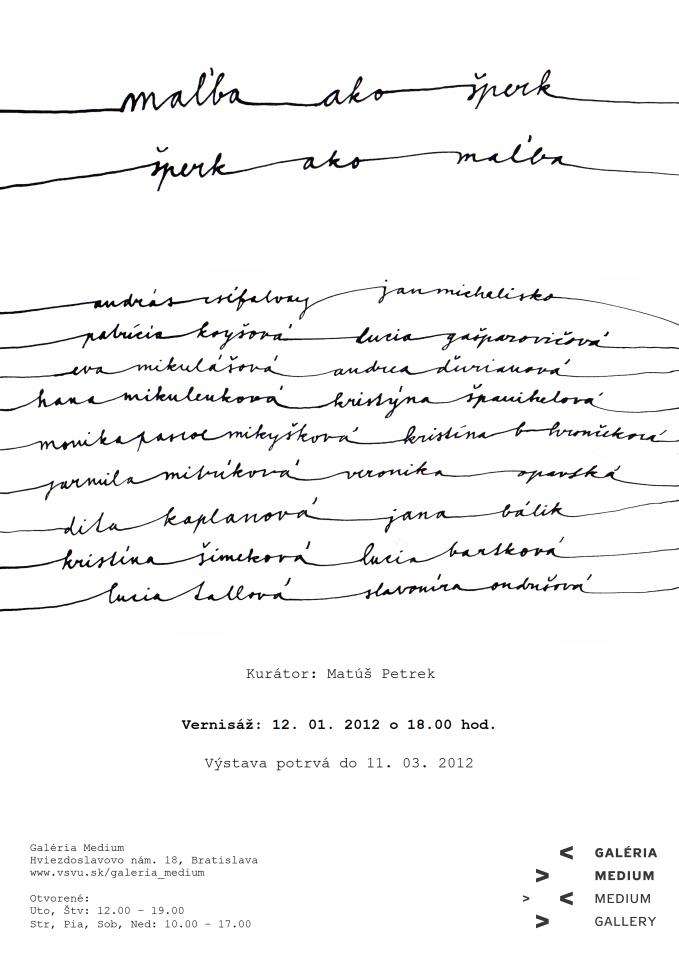 maľba ako šperk
šperk ako maľba
andrás csífalvay jan michalisko
patrícia koyšová lucia gašparovičová
eva mikulášová andrea ďurianová
hana mikulenková kristýna španihelová
monika pascoe mikyšková kristína b hroničková
jarmila mitríková veronika opavská
dita kaplanová jana bálik
kristína šimeková lucia bartková
lucia tallová slavomíra ondrušová
Kurátor: Matúš Petrek
Vernisáž: 12. 01. 2012 o 18.00 hod.
Výstava potrvá do 11. 03. 2012
Galéria Medium
Hviezdoslavovo nám. 18, Bratislava
www.vsvu.sk/galeria_medium
Otvorené:
Uto, Štv: 12.00 – 19.00
Str, Pia, Sob, Ned: 10.00 - 17.00
< GALÉRIA
> MEDIUM
> < MEDIUM
> GALLERY